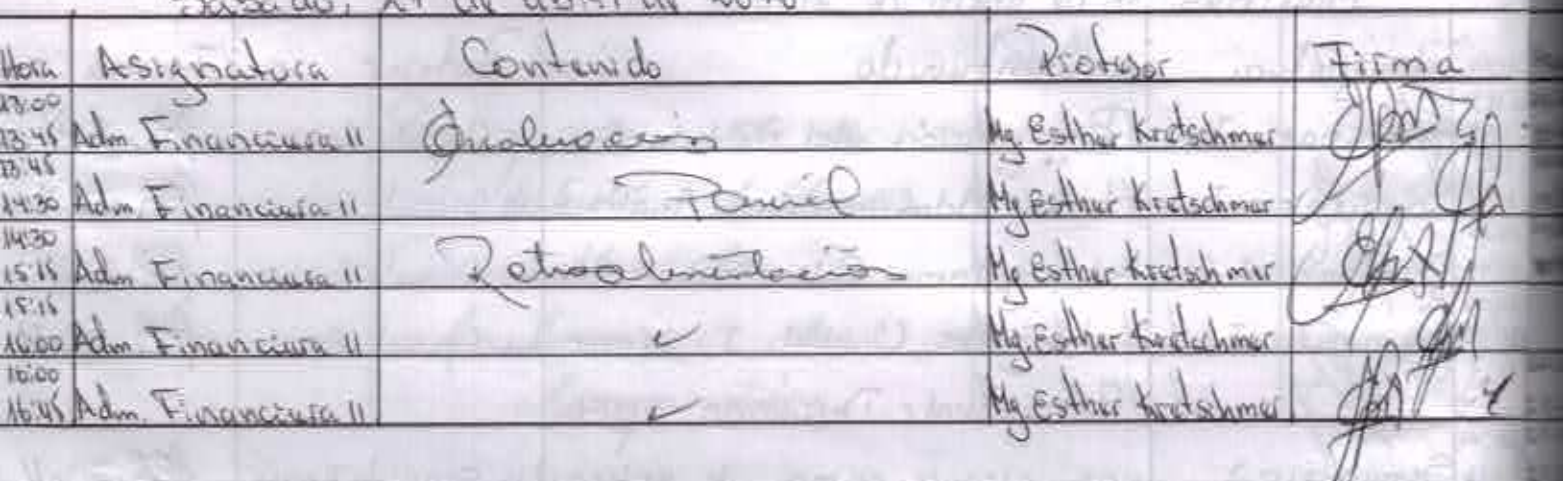 Sábado, 21 de abril de
Hora Asignatura Contenido Profesor Firma
13:00
13:45 Adm. Financiera II Evaluación Mg. Esther Kretschmer
13:45
14:30 Adm. Financiera II Parcial Mg. Esther Kretschmer
14:30
15:15 Adm. Financiera II Retroalimentación Mg. Esther Kretschmer
15:15
16:00 Adm. Financiera II ✓ Mg. Esther Kretschmer
16:00
16:45 Adm. Financiera II ✓ Mg. Esther Kretschmer